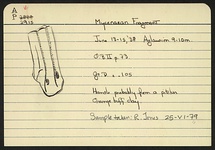 A
P
2915
Mycenaean Fragment
June 13-15/38
O.B II p. 73
G+D. = .105
Handle probably from a pitcher
Orange buff clay
Sample taken: R. Jones 25-VI-79